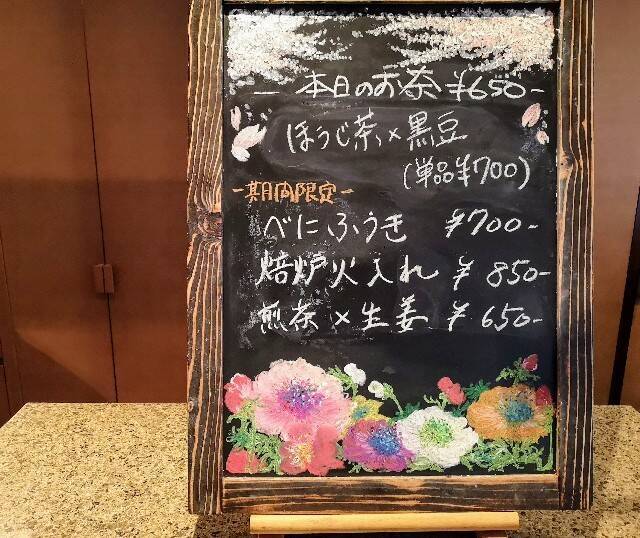 本日のお茶 ¥650-
ほうじ茶×黒豆
(単品¥700)
-期間限定-
べにふうき ¥700-
焙炉火入れ ¥850-
煎茶×生姜 ¥650-